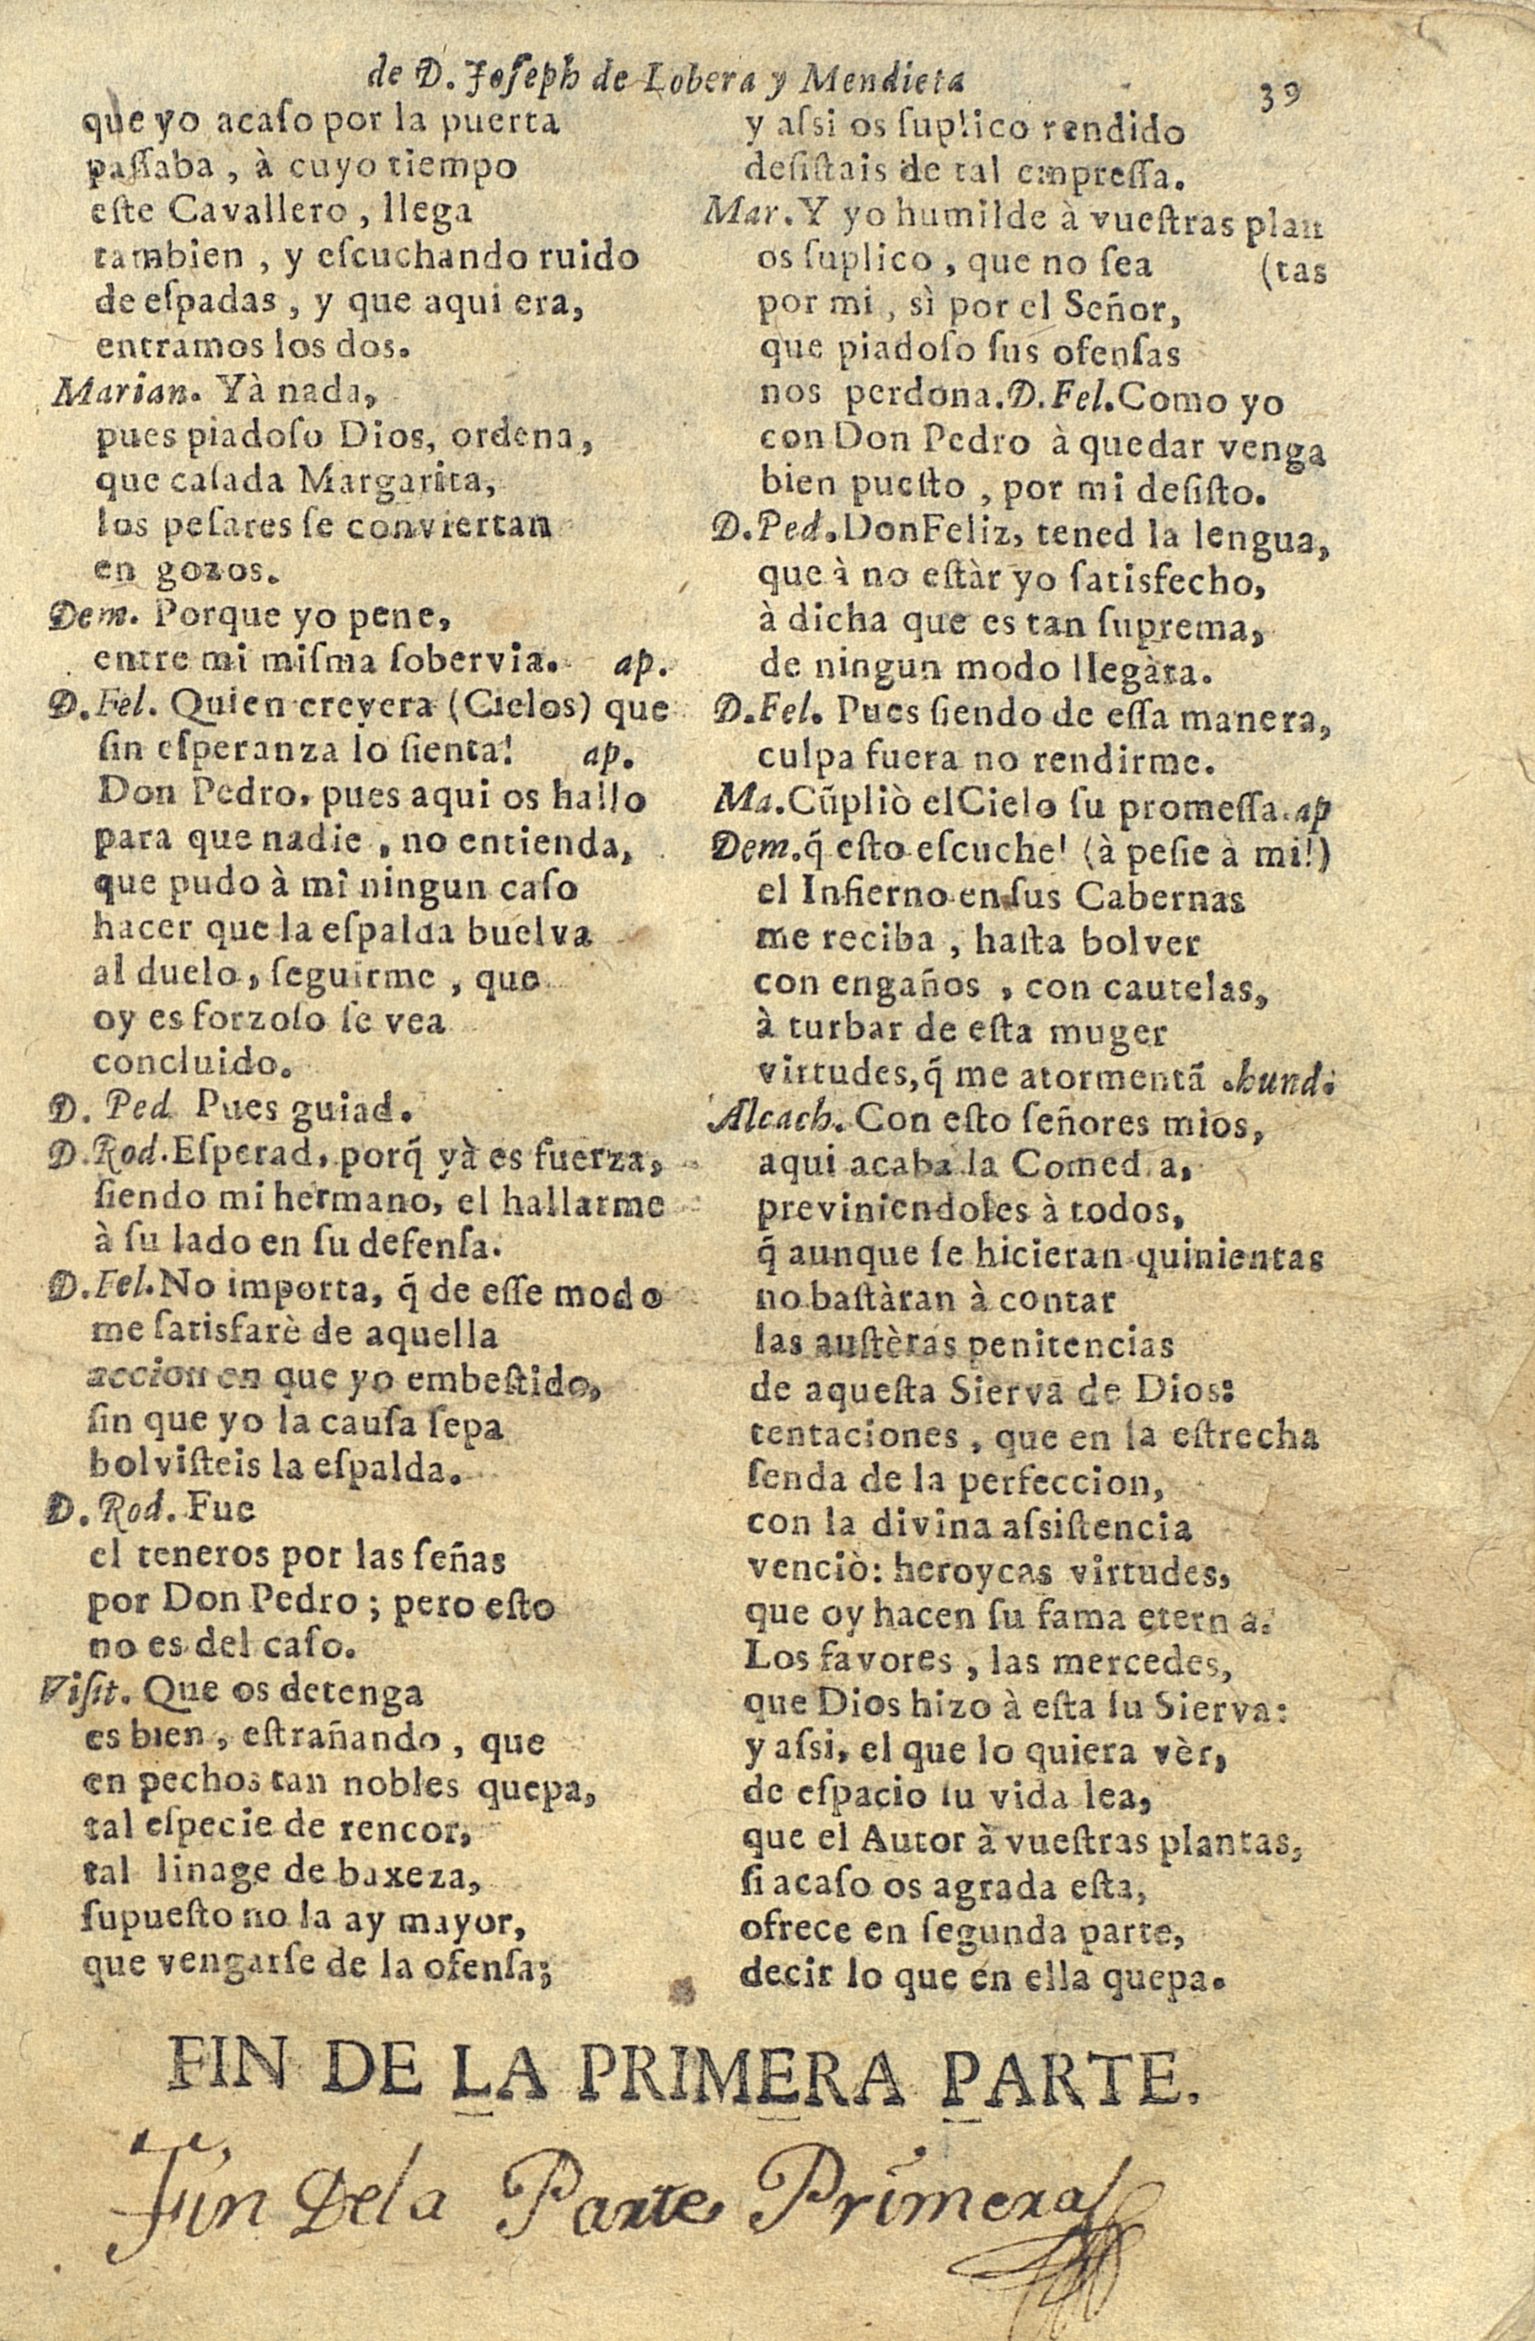 de D. Joſeph de Lobera y Mendieta 39
que yo acaſo por la puerta
paſſaba, à cuyo tiempo
eſte Cavallero, llega
tambien, y eſcuchando ruido
de eſpadas, y que aqui era,
entramos los dos.
Marian. Yà nada,
pues piadoſo Dios, ordena,
que caſada Margarita,
los peſares ſe conviertan
en gozos.
Dem. Porque yo pene,
entre mi miſma ſobervia. ap.
D. Fel. Quien creyera (Cielos) que
ſin eſperanza lo ſienta! ap.
Don Pedro, pues aqui os hallo
para que nadie, no entienda,
que pudo à mi ningun caſo
hacer que la eſpalda buelva
al duelo, ſeguirme, que
oy es forzoſo ſe vea
concluido.
D. Ped. Pues guiad.
D. Rod. Eſperad, porq̃ yà es fuerza,
ſiendo mi hermano, el hallarme
à ſu lado en ſu defenſa.
D. Fel. No importa, q̃ de eſſe modo
me ſatisfarè de aquella
accion en que yo embeſtido,
ſin que yo la cauſa ſepa
bolviſteis la eſpalda.
D. Rod. Fue
el teneros por las ſeñas
por Don Pedro; pero eſto
no es del caſo.
Viſit. Que os detenga
es bien, eſtrañando, que
en pechos tan nobles quepa,
tal eſpecie de rencor,
tal linage de baxeza,
ſupueſto no la ay mayor,
que vengarſe de la ofenſa;
y aſsi os ſuplico rendido
deſiſtais de tal empreſſa.
Mar. Y yo humilde à vueſtras plan
os ſuplico, que no ſea (tas
por mi, sì por el Señor,
que piadoſo ſus ofenſas
nos perdona. D. Fel. Como yo
con Don Pedro à quedar venga
bien pueſto, por mi deſiſto.
D. Ped. Don Feliz, tened la lengua,
que à no eſtàr yo ſatisfecho,
à dicha que es tan ſuprema,
de ningun modo llegàra.
D. Fel. Pues ſiendo de eſſa manera,
culpa fuera no rendirme.
Ma. Cũpliò el Cielo ſu promeſſa. ap
Dem. q̃ eſto eſcuche! (à peſie à mi!)
el Infierno en ſus Cabernas
me reciba, haſta bolver
con engaños, con cautelas,
à turbar de eſta muger
virtudes, q̃ me atormentã. hund.
Alcach. Con eſto ſeñores mios,
aqui acaba la Comedia,
previniendoles à todos,
q̃ aunque ſe hicieran quinientas
no baſtàran à contar
las auſtèras penitencias
de aqueſta Sierva de Dios:
tentaciones, que en la eſtrecha
ſenda de la perfeccion,
con la divina aſsiſtencia
venciò: heroycas virtudes,
que oy hacen ſu fama eterna.
Los favores, las mercedes,
que Dios hizo à eſta ſu Sierva:
y aſsi, el que lo quiera vèr,
de eſpacio ſu vida lea,
que el Autor à vueſtras plantas,
ſi acaſo os agrada eſta,
ofrece en ſegunda parte,
decir lo que en ella quepa.
FIN DE LA PRIMERA PARTE.
Fin Dela Parte Primera